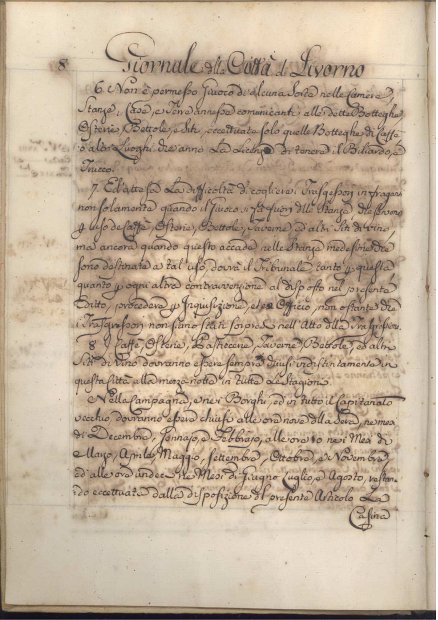 8
Giornale della Città di Livorno
6. Non è permesso Giuoco di alcuna sorte nelle Camere,
Stanze, Case, e Terre annesse comunicanti alle dette Botteghe
Osterie Bettole, e Siti, eccettuate solo quelle Botteghe di Caffè
o altri Luoghi che anno La Licenza di tenere il Biliardo, e
Trucco.
7. Ed attesa La difficoltà di cogliere i Trasgressori in fragranti
non solamente quando il Giuoco si fa fuori delle Stanze che servono
p. uso de Caffè, Osterie, Bettole, Taverne, ed altri Siti di vino
ma ancora quando questo accada nelle Stanze medesime che
sono destinate a tal uso, dovrà il Tribunale tanto p. questa
quanto p. ogni altra contravenzione al disposto nel presente
Editto, procedere p. Inquisizione, et ex Officio, non ostante che
i Trasgressori non siano stati sorpresi nell'Atto della Trasgressione.
8. Caffè, Osterie, Pasticcerie, Taverne, Bettole, ed altri
Siti di Vino dovranno essere sempre chiusi indistintamente in
questa Città alla mezza notte in tutte Le Stagioni.
Nella Campagna, e nei Borghi, ed in tutto il Capitanato
vecchio dovranno essere chiusi alle ore nove della Sera, ne mesi
di Decembre, Gennajo, e Febbrajo, alle ore 10 nei Mesi di
Marzo, Aprile Maggio, Settembre, Ottobre, e Novembre
ed alle ore undici ne Mesi di Giugno Luglio, e Agosto, restan-
do eccettuata dalla disposizione del presente Articolo La
Casina